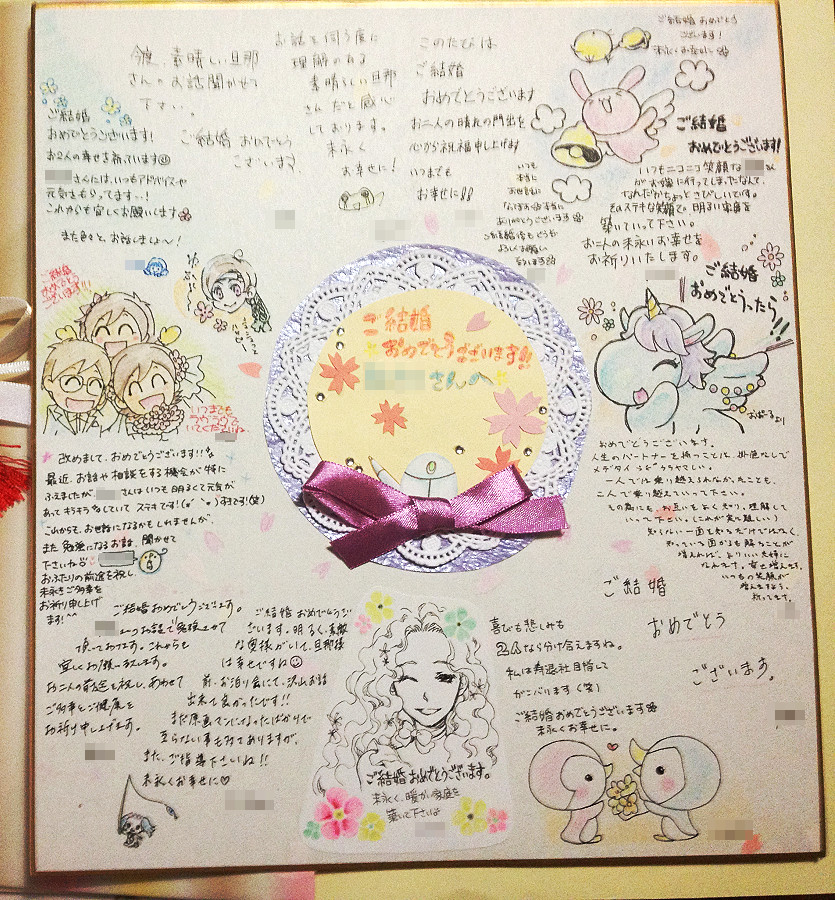 今度、素晴しい旦那
さんのお話聞かせて
下さい。
ご結婚 おめでとう
ございます。
お話を伺う度に
理解のある
素晴らしい旦那
さんだと感心
しております。
末永く
お幸せに!
このたびは
ご結婚
おめでとうございます
お二人の晴れの門出を
心から祝福申し上げます
いつまでも
お幸せに!!
ご結婚おめでとう
ございます!
末永くお幸せに
ご結婚
おめでとうございます!
いつもニコニコ笑顔な
がお嫁に行ってしまったなんて、
なんだかちょっとさびしいです。
そのステキな笑顔で明るい家庭を
築いていって下さい。
お二人の末永いお幸せを
お祈りいたします。
ご結婚
おめでとうございます!
お2人の幸せを祈っています
さんには、いつもアドバイスや
元気をもらってます…!
これからも宜しくお願いします
また色々と、お話しましょ〜!
いつも
本当に
お世話に
なっており本当に
ありがとうございます
ご結婚後もどうぞ
よろしくお願い
致します
ご結婚
おめでとう
ございます!!!
いつまでも
ラブラブで
いてくださいね
ご結婚
おめでとうございます!!
さんへ
ご結婚
おめでとうったら!!
おぱーるより
改めまして、おめでとうございます!!
最近、お話や相談をする機会が特に
ふえましたが、さんはいつも明るくて元気が
あってキラキラしていてステキです!(笑)
これからも、お世話になるかもしれませんが、
また勉強になるお話、聞かせて
下さいね
おふたりの前途を祝し、
末永くご多幸を
お祈り申し上げ
ます!^^
おめでとうございます。
人生のパートナーを持つことは、掛色なしで
メデタイうらやましい。
一人では乗り越えられなかったことも、
二人で乗り越えていって下さい。
その為にも、お互いをよく知り、理解して
いって下さい。(これが実に難しい)
知らない一面を知るだけではなく、
知っている面がるを解ることが
増えれば、よりいい夫婦に
なれます。幸せ増えます。
いつもの笑顔が
増えますよう、
祈ってます。
ご結婚おめでとうございます。
いつもお話で発散させて
頂いております。これからも
宜しくお願い致します。
お二人の前途を祝し、あわせて
ご多幸とご健康を
お祈り申し上げます。
ご結婚おめでとうご
ざいます。明るく、素敵
な奥様がいて、旦那様
は幸せですね
前、お泊り会にて、沢山お話
出来て良かったです!!
まだ原画マンになったばかりで
至らない事も多々ありますが、
また、ご指導下さいね!!
末永くお幸せに♡
ご結婚おめでとうございます。
末永く、暖かい家庭を
築いて下さいね
ご結婚
おめでとう
ございます。
喜びも悲しみも
2人なら分け合えますね。
私は寿退社目指して
がんばります(笑)
ご結婚おめでとうございます
末永くお幸せに。